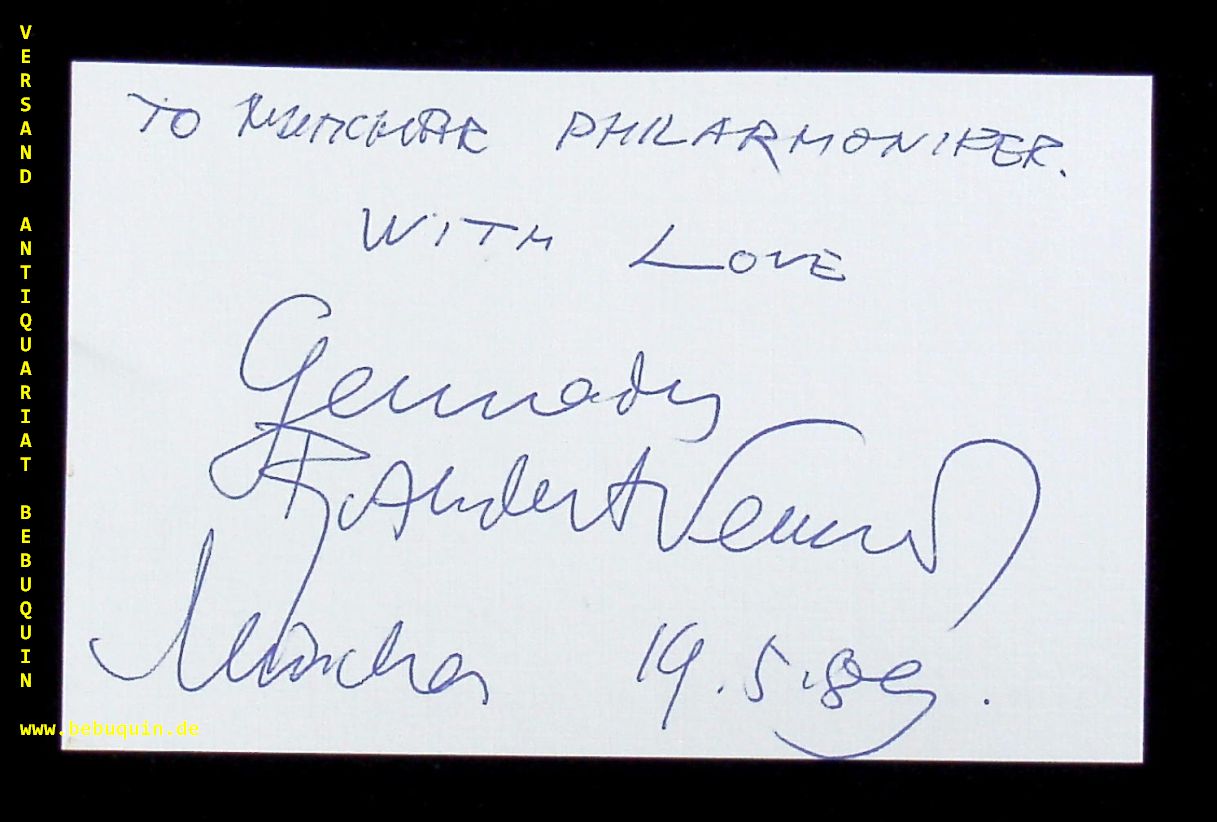 VERSAND ANTIQUARIAT BEBUQUIN
www.bebuquin.de
TO MÜNCHNER PHILARMONIKER.
WITH LOVE
Gennady
Rozhdestvensky
München 19.5.89.